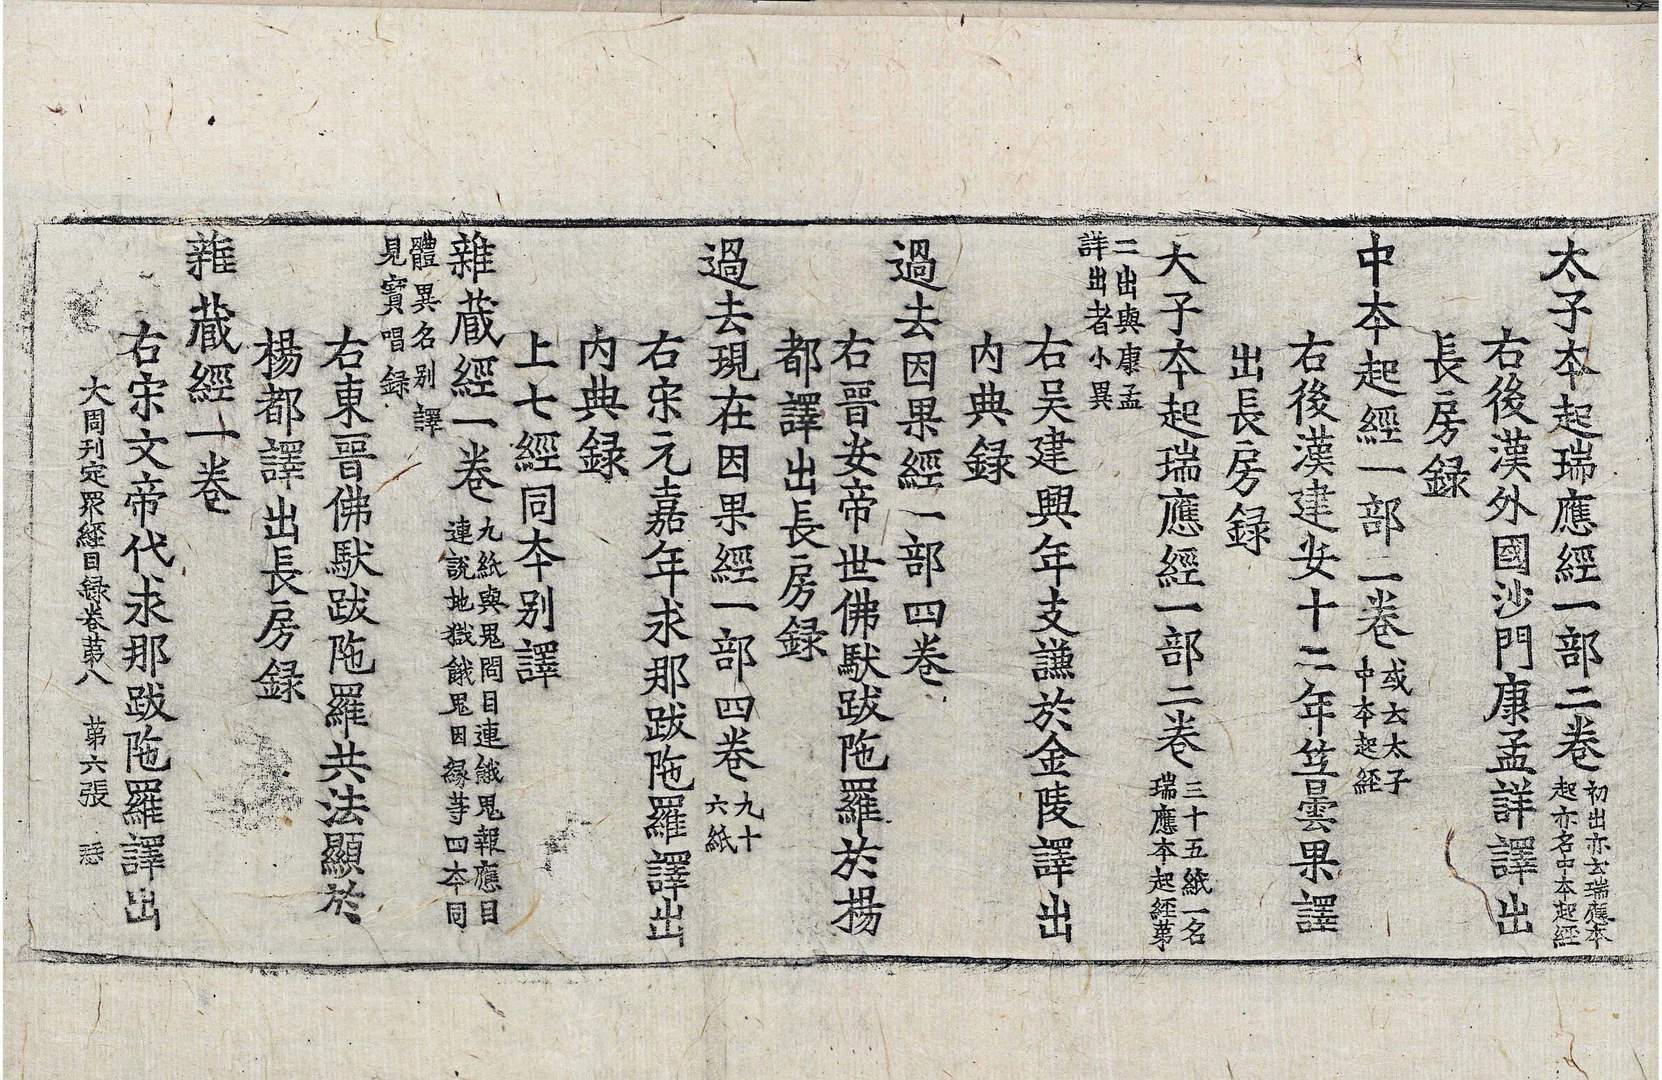 太子本起瑞應經一部二卷 初出亦云瑞應本起亦名中本起經
右後漢外國沙門康孟詳譯出
長房録
中本起經一部二卷 或云太子中本起經
右後漢建安十二年竺曇果譯
出長房録
大子本起瑞應經一部二卷 三十五紙一名瑞應本起經第
二出與康孟詳出者小異
右吴建興年支謙於金陵譯出
内典録
過去因果經一部四卷
右晉安帝世佛馱跋陁羅於揚
都譯出長房録
過去現在因果經一部四卷 九十六紙
右宋元嘉年求那跋陁羅譯出
内典録
上七經同本别譯
雜蔵經一卷 九紙與鬼問目連餓鬼報應目連説地獄餓鬼因縁等四本同
體異名别譯見寳唱録
右東晉佛馱跋陁羅共法顯於
楊都譯出長房録
雜蔵經一卷
右宋文帝代求那跋陁羅譯出
大周刊定眾經目録卷苐八 苐六張